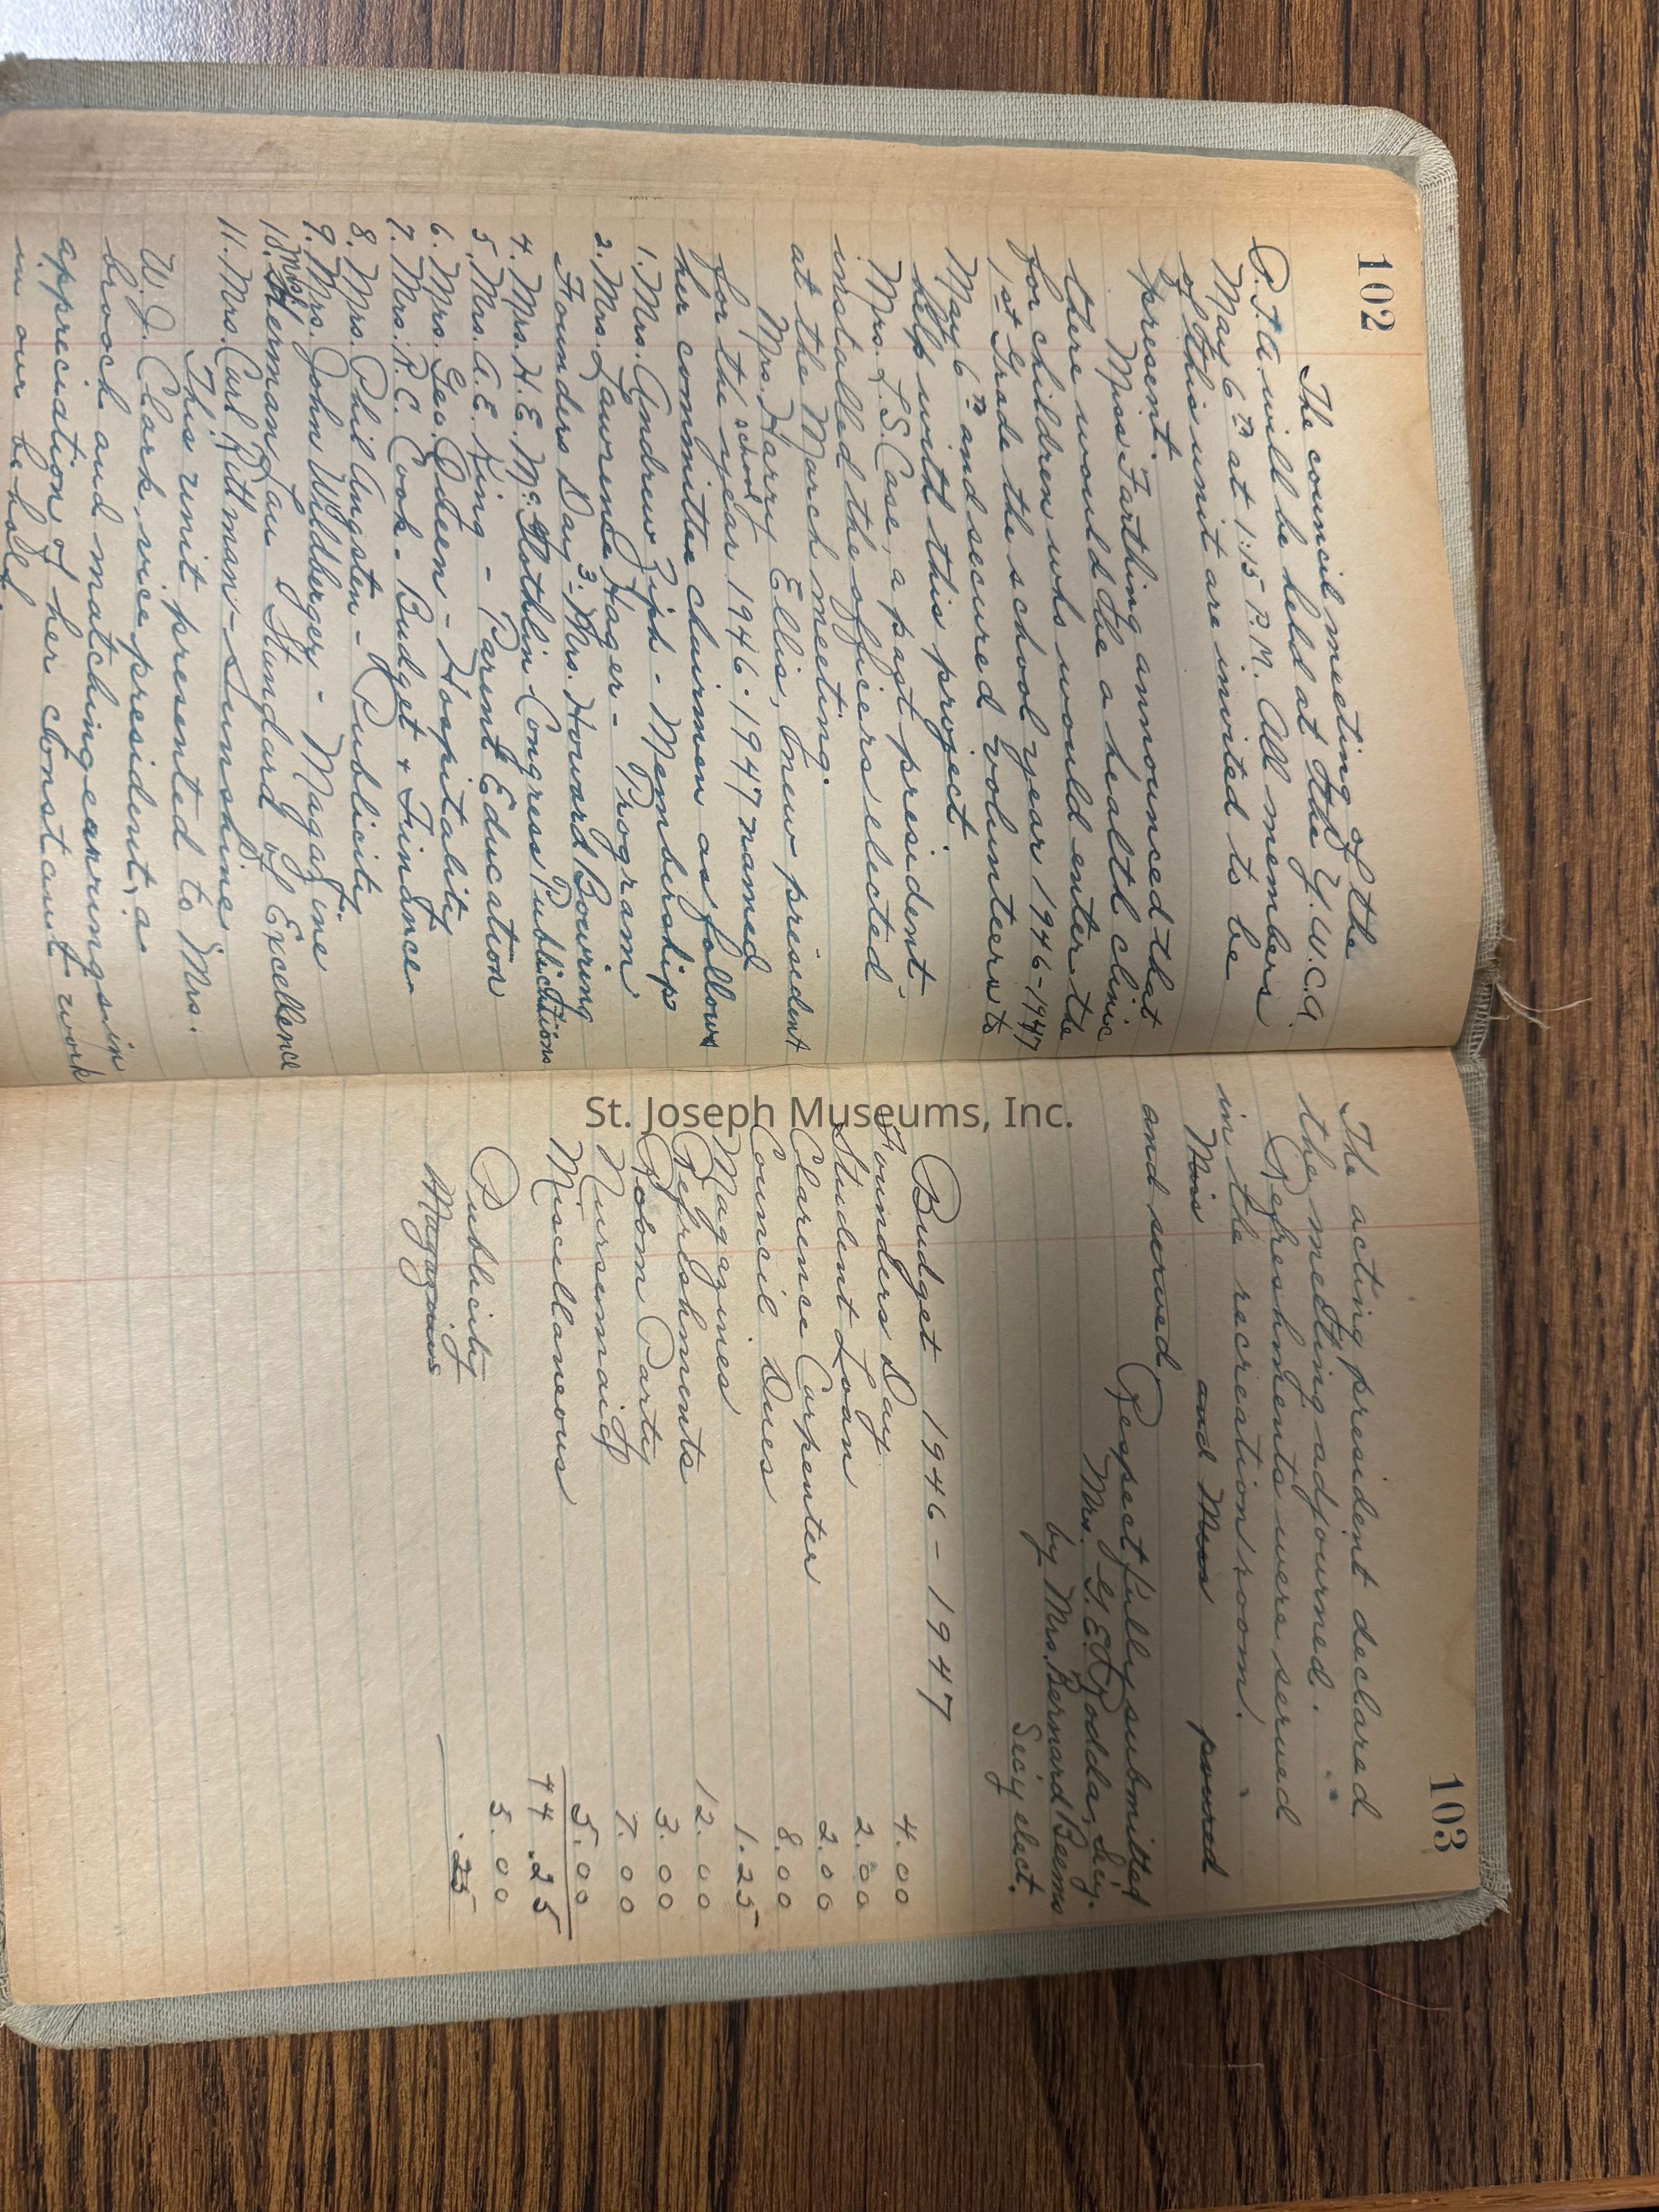 102
The council meeting of the
P.T.A. will be held at the Y.W.C.A.
May 6th at 1:15 P.M. All members
of this unit are invited to be
present.
Miss Farthing announced that
there would be a health clinic
for children who would enter the
1st Grade the school year 1946-1947
May 6th and secured volunteers to
help with this project
Mrs. L.S. Case, a past president,
installed the officers elected
at the March meeting.
Mrs. Harry Ellis, new president
for the school year 1946-1947 named
her committee chairmen as follows
1. Mrs. Andrew Ziph - Membership
2. Mrs. Lawrence Hager - Program
Founders Day - 3. Mrs. Howard Bowring
4. Mrs. H.E. McGlothlin - Congress Publications
5. Mrs. A.E. King - Parent Education
6. Mrs. Geo. Odeen - Hospitality
7. Mrs. R.C. Cook - Budget & Finance
8. Mrs. Phil Angsten - Publicity
9. Mrs. John Wildberger - Magazine
10. Mrs. Herman Lau Standard of Excellence
11. Mrs. Carl Puttman - Sunshine
This unit presented to Mrs.
W.J. Clark, vice president, a
brooch and matching earrings in
appreciation of her constant work
in our behalf.
103
The acting president declared
the meeting adjourned.
Refreshments were served
in the recreation room.
Miss and Miss poured
and served
Respectfully submitted
Mrs. G.E. Rodda, Sec'y.
by Mrs. Bernard Beems
Sec'y elect.
Budget 1946 - 1947
Founders Day 4.00
Student Loan 2.00
Clarence Carpenter 2.00
Council Dues 8.00
Magazines 1.25
Refreshments 12.00
Room Party 3.00
Nursemaid 7.00
Miscellaneous 5.00
44.25
Publicity 5.00
Magazines .25
St. Joseph Museums, Inc.